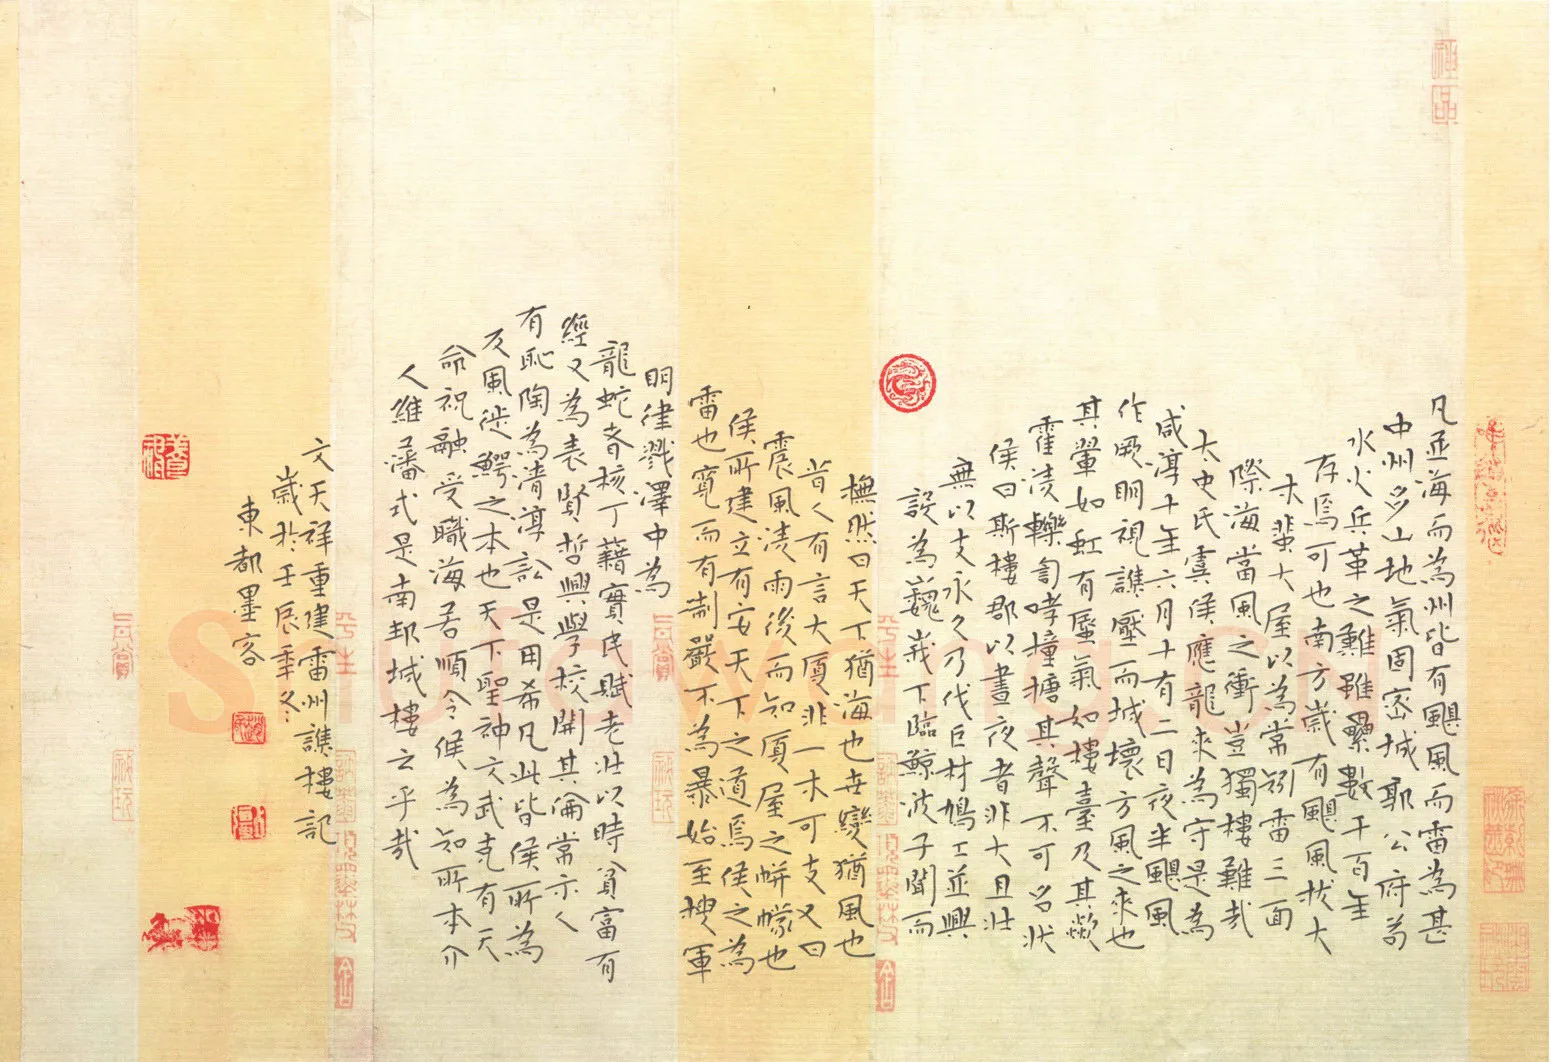 凡並海而為州皆有颶風而雷為甚
中州多山地氣固密城耶公府苟
水火兵革之難雖纍數千百年
存焉可也南方歲有颶風拔大
木蜚大屋以為常矧雷三面
際海當風之衝豈獨樓難哉
太史氏虞侯應龍來為守是為
咸淳十年六月十有二日夜半颶風
作厥明視譙壓而城壞方風之來也
其暈如虹有蜃氣如樓臺及其歘
霍渀轢訇哮撞搪其聲不可名狀
侯曰斯樓郡以晝夜者非大且壯
無以支永久乃伐巨材鳩工並興
設為巍峩下臨鯨波子聞而
撫然曰天下猶海也世變猶風也
昔人有言大廈非一木可支又曰
震風淩雨後而知廈屋之帡幪也
侯所建立有安天下之道焉侯之為
雷也寬而有制嚴不為暴始至搜軍
明律戮澤中為
龍蛇者核丁藉實民賦老壯以時貧富有
經又為表賢哲興學校開其倫常示人
有恥陶為清淳訟是用希凡此皆侯所為
反風徙鰐之本也天下聖神文武克有天
命祝融受職海若順令侯為知所本介
人維藩式是南邦城樓之乎哉
文天祥重建雷州譙樓記
歲於壬辰季冬
東都墨客
極品
shufawang.cn